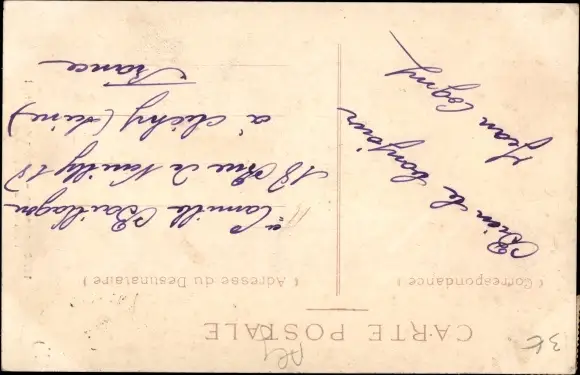 CARTE POSTALE
( Correspondance )
( Adresse du Destinataire )
Bien le bonjour
Jean Cogny
Camille Baillagou
18 Rue de Neuilly 18
à clichy (Seine)
France